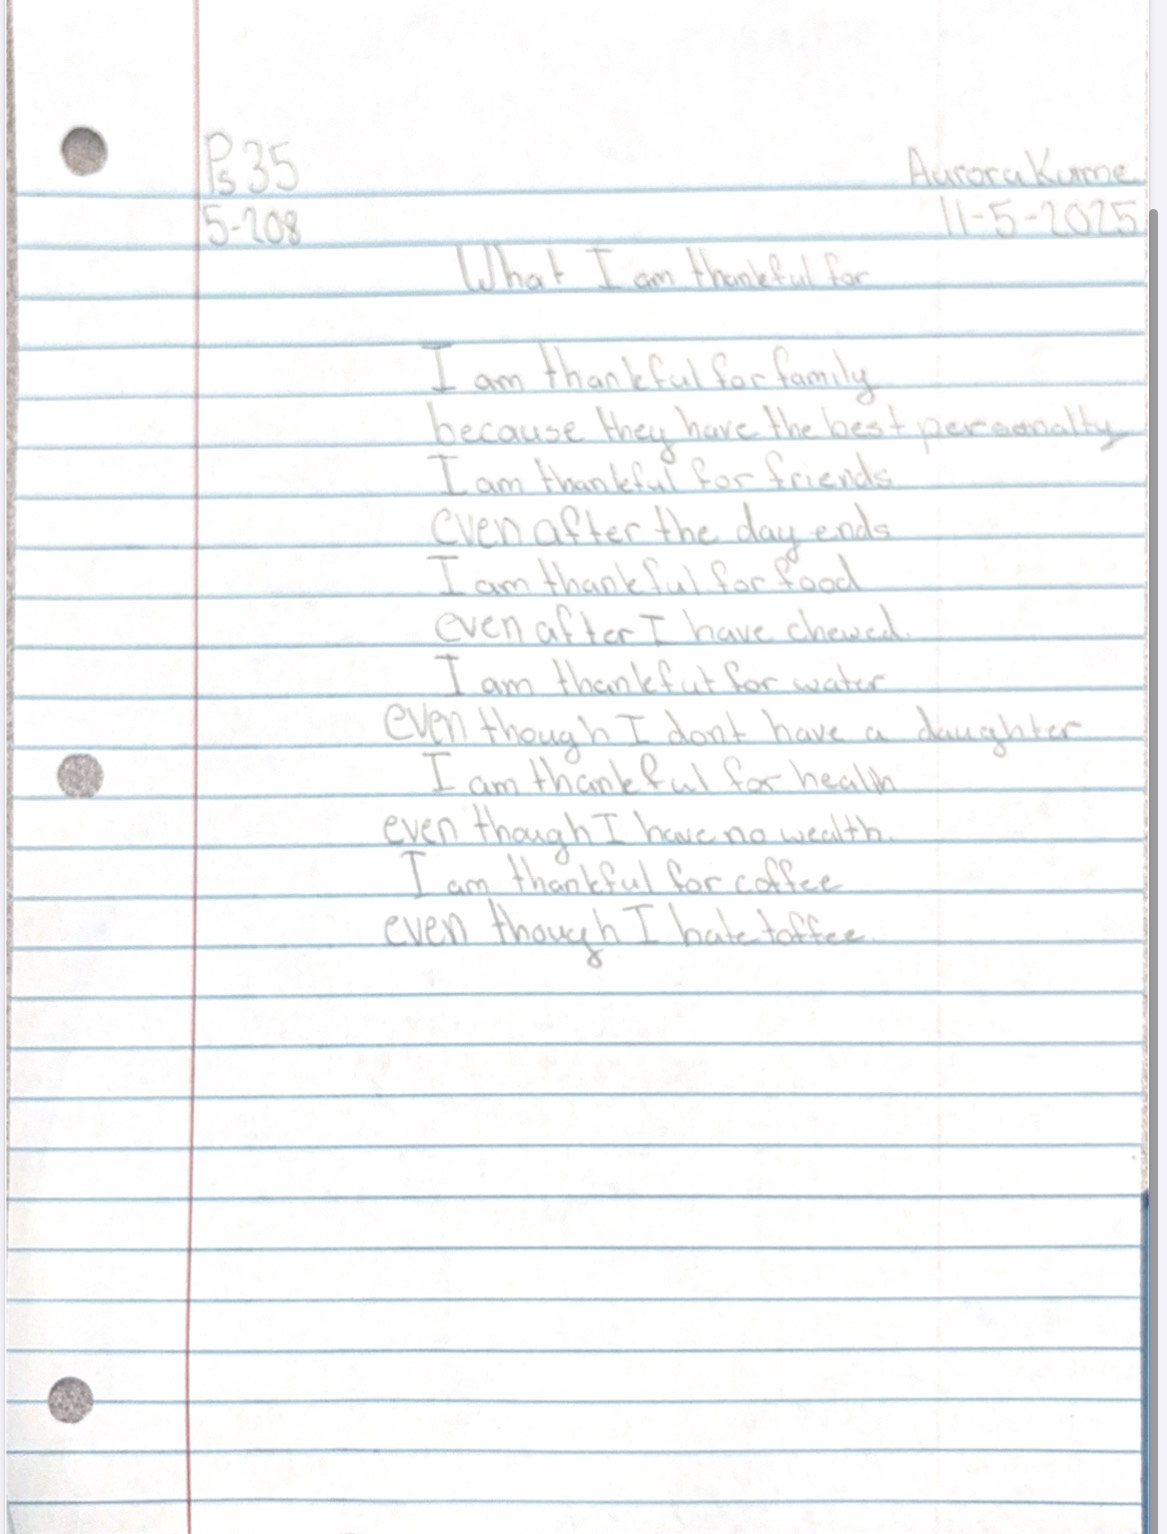 Ps 35
Aurora Kurne
5-208
11-5-2025
What I am thankful for
I am thankful for family
because they have the best personalty
I am thankful for friends
even after the day ends
I am thankful for food
even after I have chewed.
I am thankful for water
even though I dont have a daughter
I am thankful for health
even though I have no wealth.
I am thankful for coffee
even though I hate toffee.